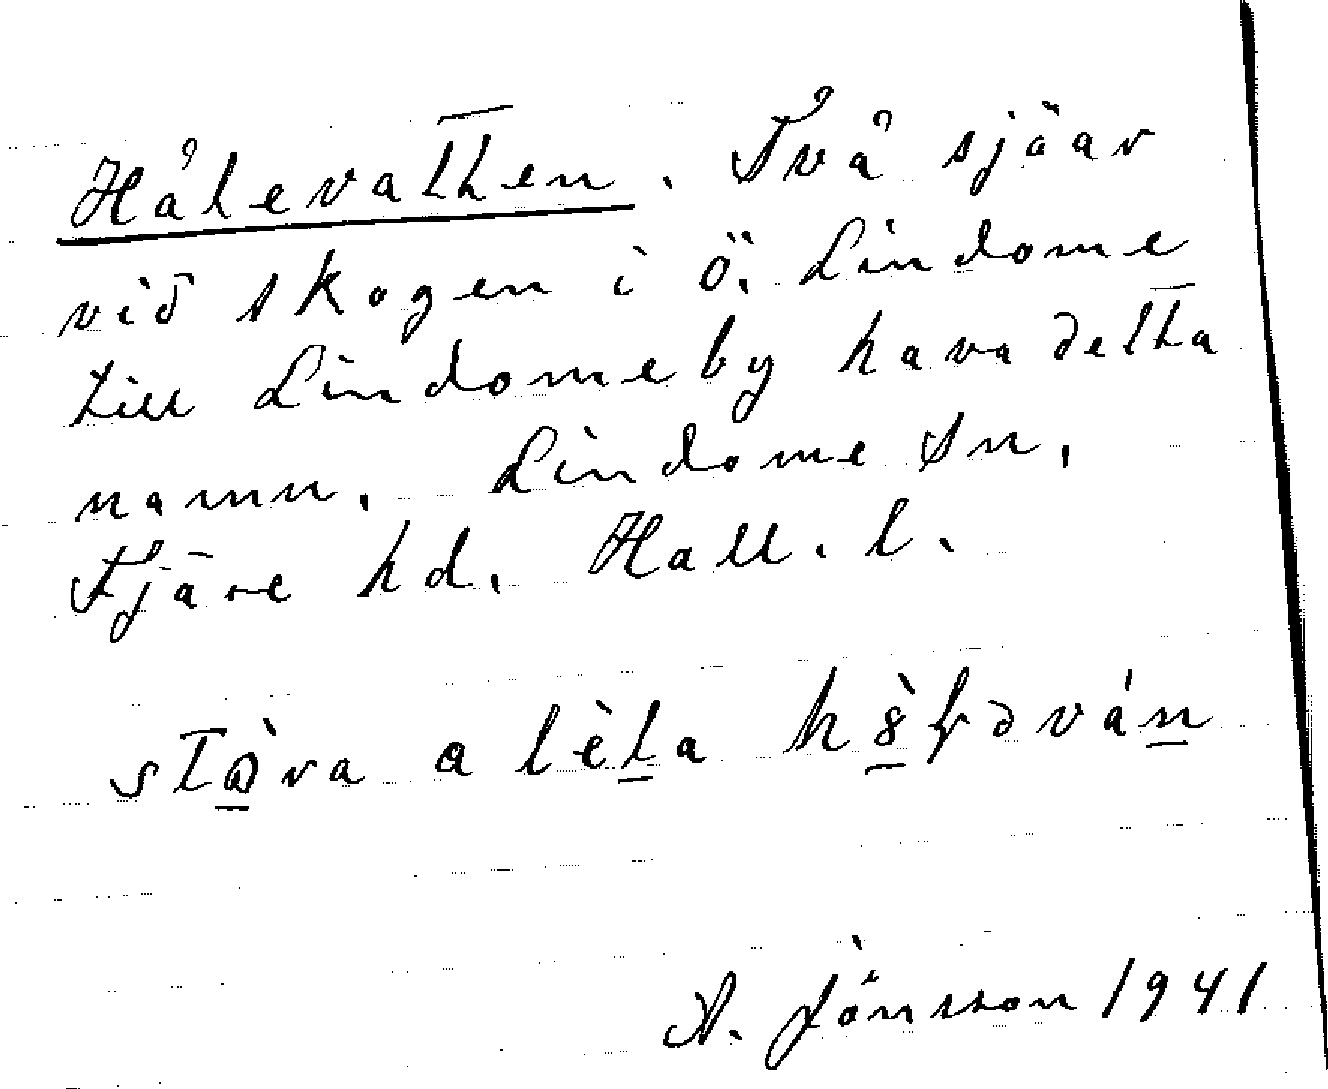 Hålevatten. Två sjöar
vid skogen i Ö. Lindome
till Lindomeby hava detta
namn. Lindome Sn,
Fjäre hd. Hall. l.
a
A. Jönsson 1941